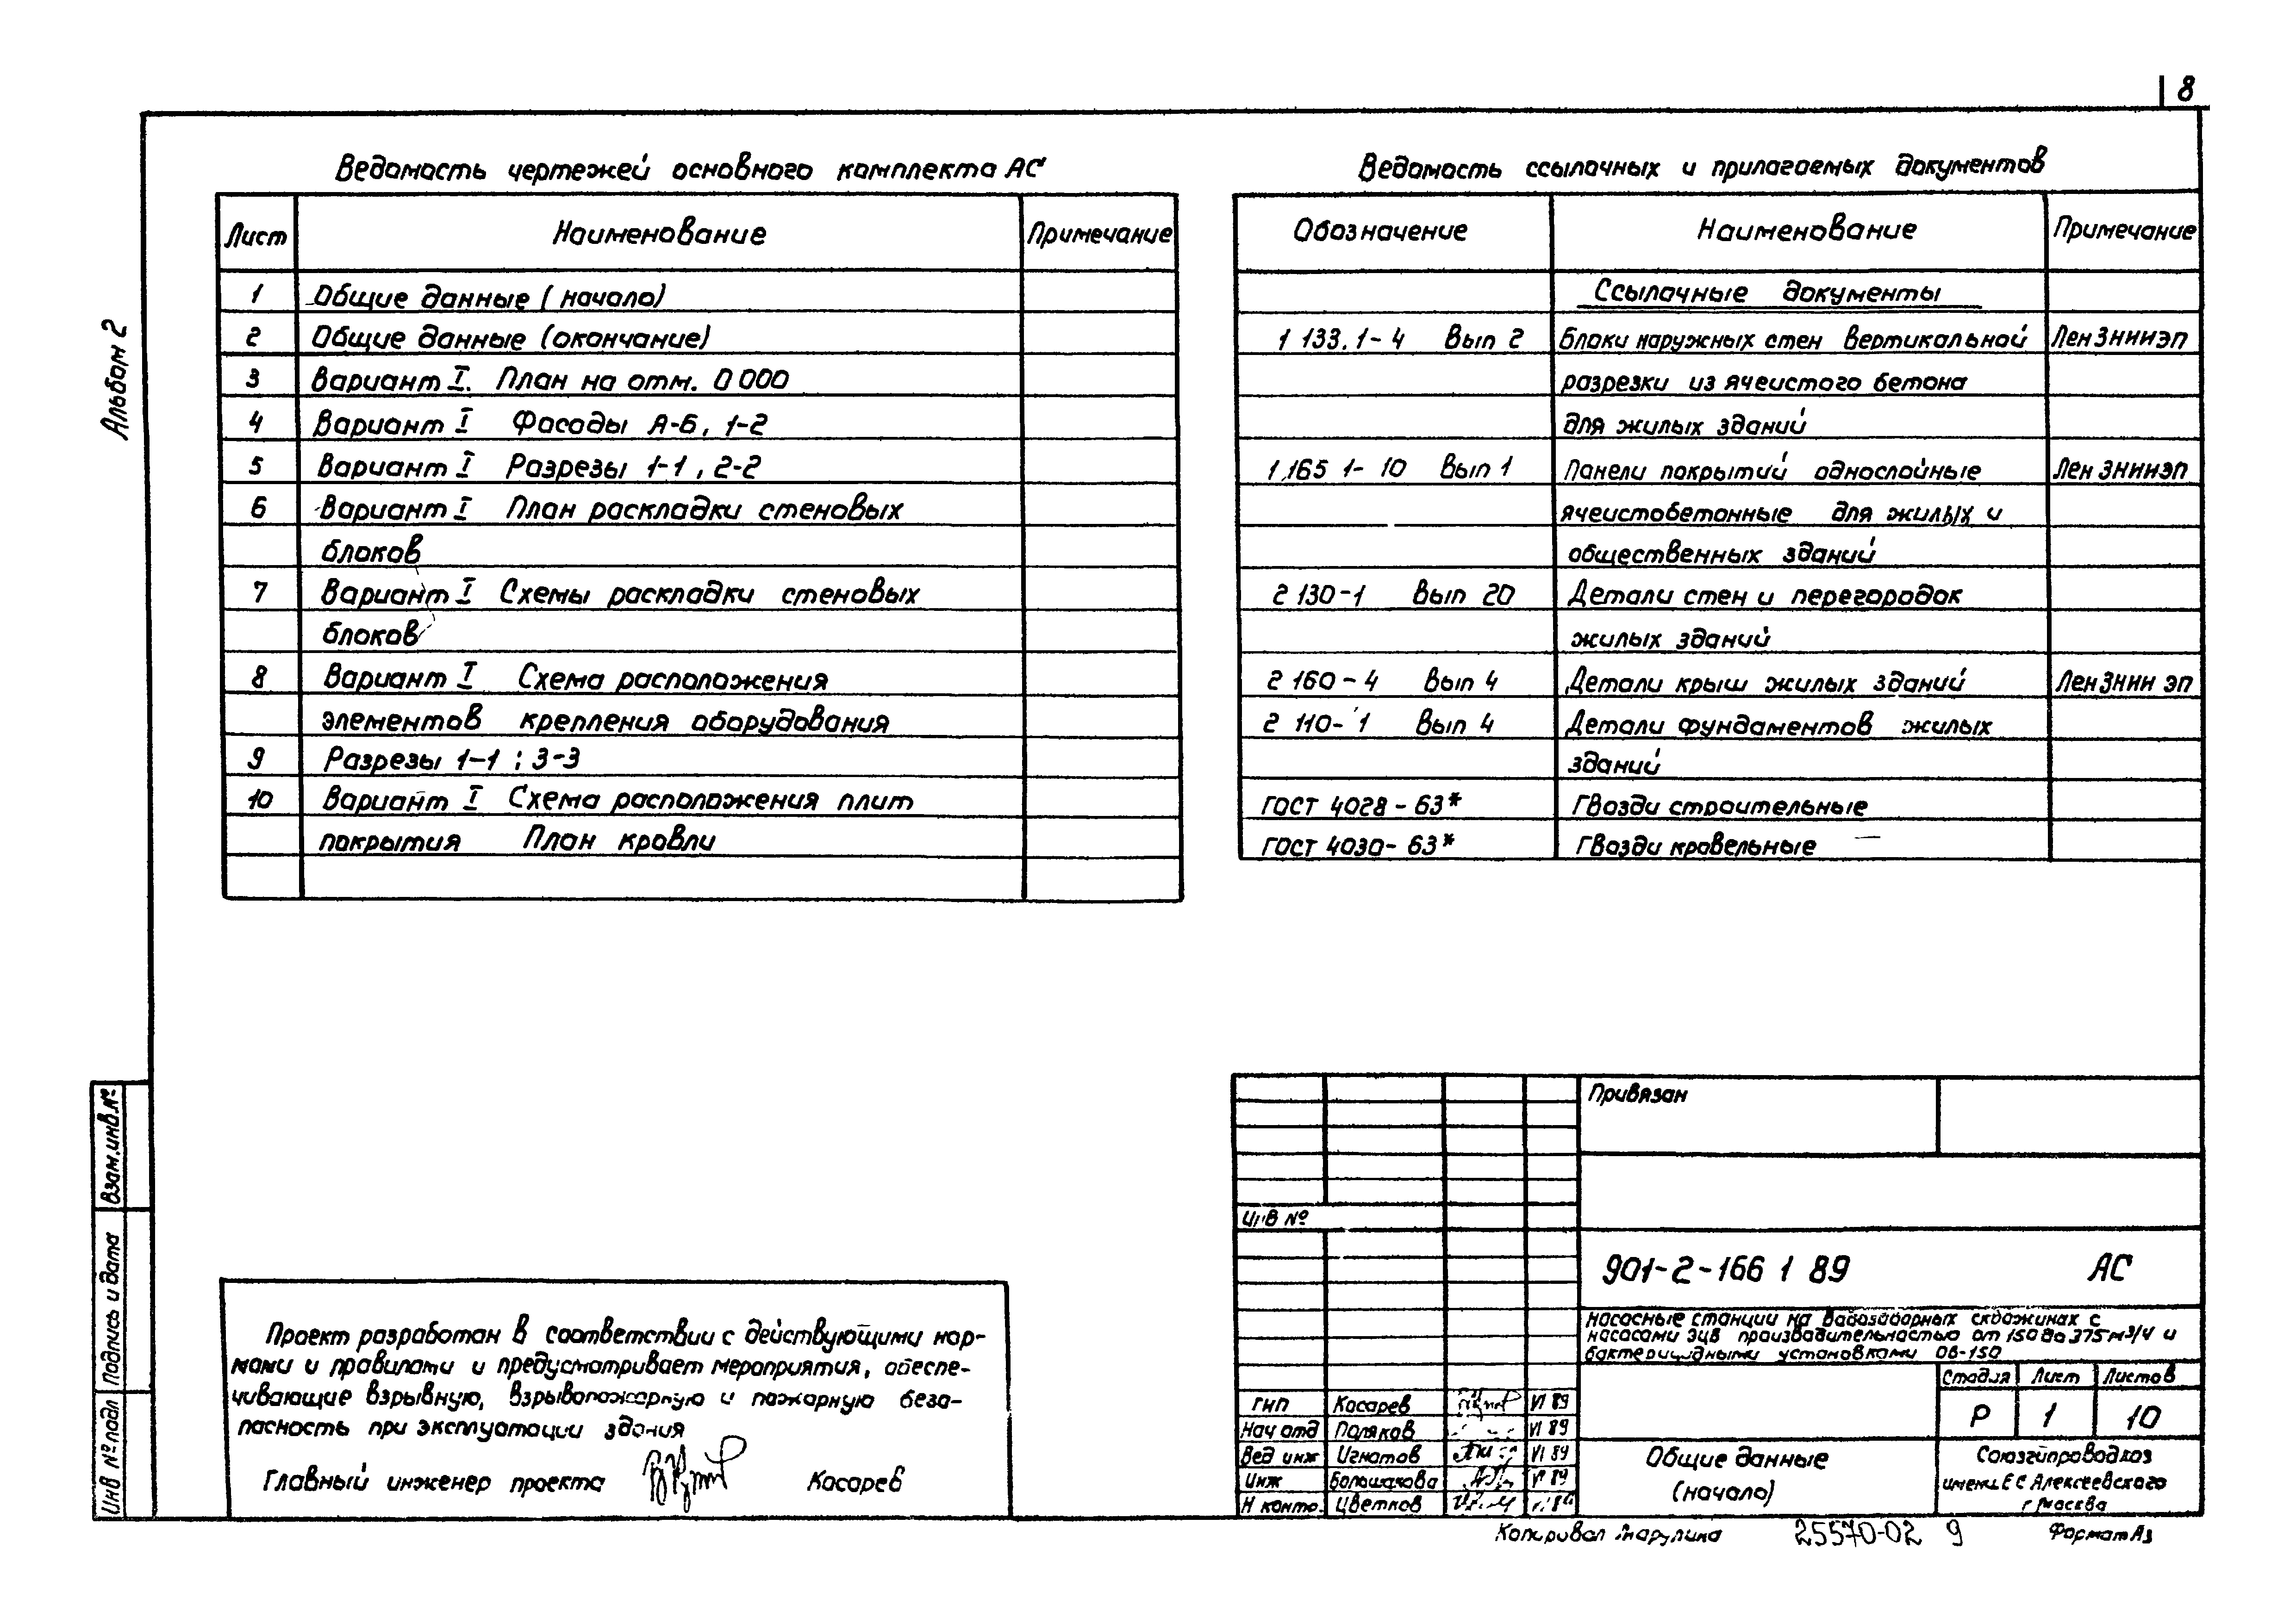 8
Альбом 2
Ведомость чертежей основного комплекта АС
Лист Наименование Примечание
1 Общие данные (начало)
2 Общие данные (окончание)
3 Вариант I. План на отм. 0 000
4 Вариант I Фасады А-Б, 1-2
5 Вариант I Разрезы 1-1, 2-2
6 Вариант I План раскладки стеновых
блоков
7 Вариант I Схемы раскладки стеновых
блоков
8 Вариант I Схема расположения
элементов крепления оборудования
9 Разрезы 1-1 ; 3-3
10 Вариант I Схема расположения плит
покрытия План кровли
Ведомость ссылочных и прилагаемых документов
Обозначение Наименование Примечание
Ссылочные документы
1 133.1-4 Вып 2 Блоки наружных стен вертикальной ЛенЗНИИЭП
разрезки из ячеистого бетона
для жилых зданий
1.165 1-10 Вып 1 Панели покрытий однослойные ЛенЗНИИЭП
ячеистобетонные для жилых и
общественных зданий
2 130-1 Вып 20 Детали стен и перегородок
жилых зданий
2 160-4 Вып 4 Детали крыш жилых зданий ЛенЗНИИЭП
2 110-1 Вып 4 Детали фундаментов жилых
зданий
ГОСТ 4028-63* Гвозди строительные
ГОСТ 4030-63* Гвозди кровельные
Взам.инв.№
Подпись и дата
Инв № подл
Проект разработан в соответствии с действующими нор-
мами и правилами и предусматривает мероприятия, обеспе-
чивающие взрывную, взрывопожарную и пожарную безо-
пасность при эксплуатации здания
Главный инженер проекта Косарев
Привязан
Инв №
901-2-166 1 89 АС
Насосные станции на водозаборных скважинах с
насосами ЭЦВ производительностью от 150 до 375 м3/ч и
бактерицидными установками ОВ-150
Стадия Лист Листов
Р 1 10
ГИП Косарев VI 89
Нач отд Поляков VI 89
Вед инж Игнатов VI 89
Инж Большакова VI 89
Н контр. Цветков
Общие данные
(начало)
Союзгипроводхоз
имени Е С Алексеевского
г Москва
Копировал Марулина 25570-02 9 Формат А3